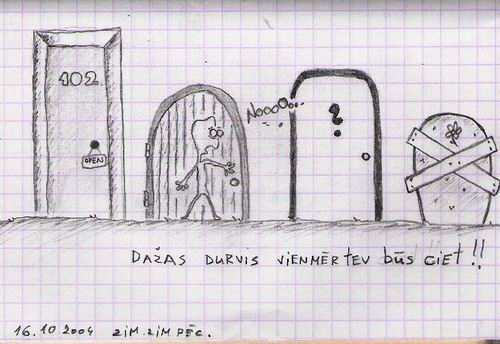 102
OPEN
NoooOo...
?
DAŽAS DURVIS VIENMĒR TEV BŪS CIET!!
16.10 2004 ZIM. ZIM PĒC.